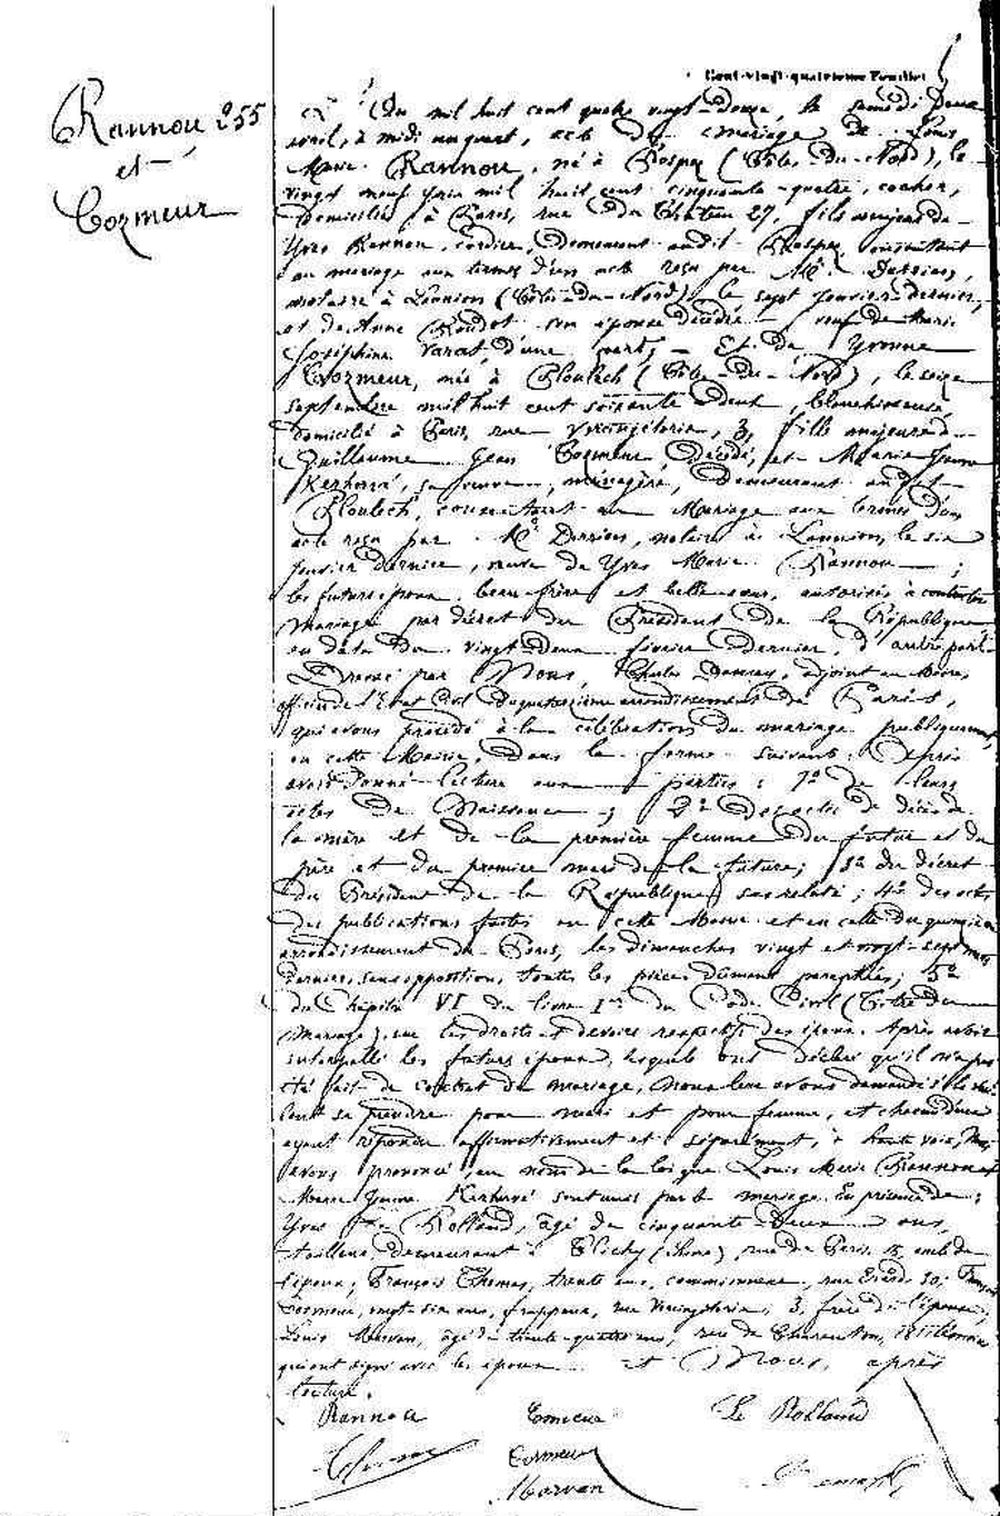 Cent-vingt-quatrième Feuillet
Rannou 255
et
Cozmeur
L'An mil huit cent quatre vingt-douze, le samedi deux
avril, à midi un quart, acte de mariage de Louis
Marie Rannou, né à Rospez (Côtes-du-Nord), le
vingt neuf juin mil huit cent cinquante-quatre, cocher,
domicilié à Paris, rue du Château 27, fils majeur de
Yves Rannou, cordier, demeurant audit Rospez, consentant
au mariage aux termes d'un acte reçu par Me Derrien,
notaire à Lannion (Côtes-du-Nord) le sept janvier dernier,
et de Anne son épouse décédée, veuf de Marie
Joséphine d'une part; - Et de Yvonne
Cozmeur, née à Ploulech (Côtes-du-Nord), le seize
septembre mil huit cent soixante deux, blanchisseuse,
domiciliée à Paris, rue Vercingétorix, 3, fille majeure de
Guillaume Jean Cozmeur, décédé, et Marie Jeanne
Kerhervé, sa veuve, ménagère, demeurant audit
Ploulech, consentant au Mariage aux termes d'un
acte reçu par Me Derrien, notaire à Lannion, le six
janvier dernier, veuve de Yves Marie Rannou;
les futurs époux, beau-frère et belle-sœur, autorisés à contracter
mariage par décret du Président de la République
en date du vingt-deux février dernier, d'autre part.
Dressé par Nous, Charles adjoint au Maire,
officier de l'Etat Civil du quatorzième arrondissement de Paris,
qui avons procédé à la célébration du mariage publiquement,
en cette Mairie, dans la forme suivante: Après
avoir donné lecture aux parties: 1° de leurs
actes de Naissance; 2° des actes de décès de
la mère et de la première femme du futur et du
père et du premier mari de la future; 3° du décret
du Président de la République susrelaté; 4° des actes
des publications faites en cette Mairie et en celle du quinzième
arrondissement de Paris, les dimanches vingt et vingt-sept mars
dernier, sans opposition, toutes les pièces dûment paraphées; 5°
du Chapitre VI du livre Ier du Code Civil (Titre du
Mariage), sur les droits et devoirs respectifs des époux. Après avoir
interpellé les futurs époux, lesquels ont déclaré qu'il n'a pas
été fait de contrat de mariage, nous leur avons demandé s'ils veu-
lent se prendre pour mari et pour femme, et chacun d'eux
ayant répondu affirmativement et séparément, à haute voix, Nous
avons prononcé, au nom de la loi que Louis Marie Rannou et
Marie Jeanne Kerhervé sont unis par le mariage. En présence de:
Yves Le Rolland, âgé de cinquante-deux ans,
tailleur, demeurant à Clichy (Seine), rue de Paris 15, oncle de
l'époux; François Thomas, trente ans, commissionnaire, rue 30; François
Cozmeur, vingt-six ans, frappeur, rue Vercingétorix, 3, frère de l'épouse;
Louis Morvan, âgé de trente-quatre ans, rue de Charenton, témoins
qui ont signé avec les époux et Nous, après
lecture.
Rannou Cozmeur Le Rolland
Thomas Cozmeur
Morvan